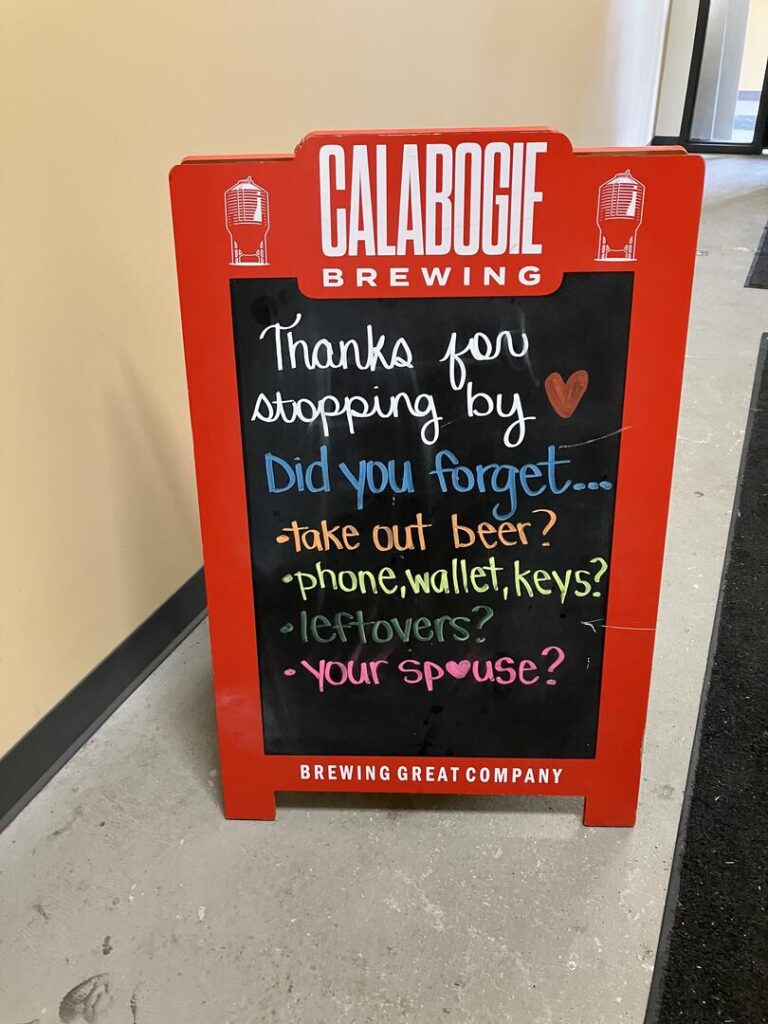 CALABOGIE
BREWING
Thanks for
stopping by
Did you forget...
•take out beer?
•phone, wallet, keys?
•leftovers?
•your sp♥use?
BREWING GREAT COMPANY